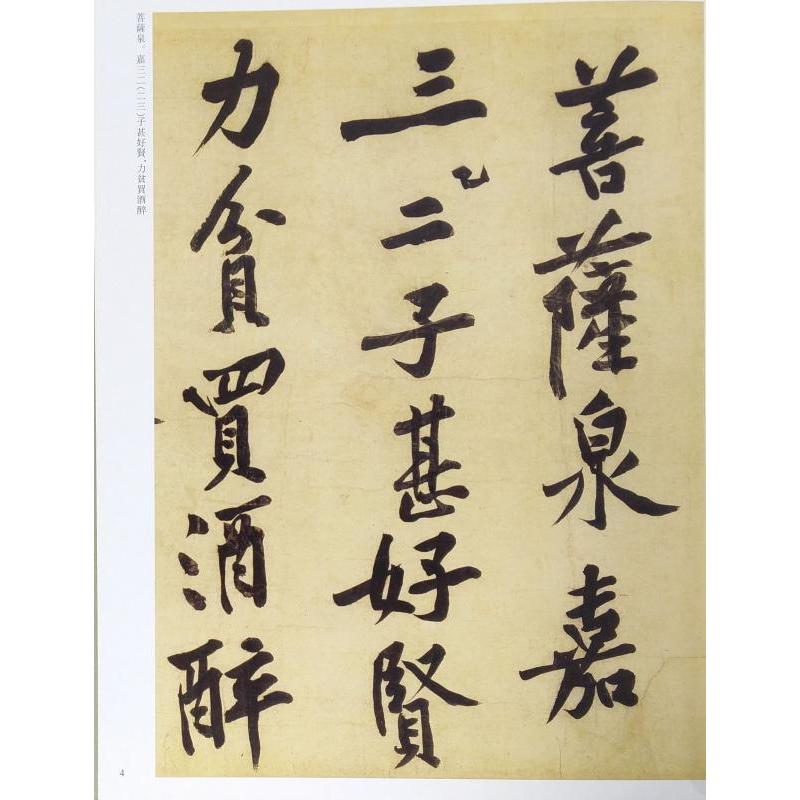 菩薩泉嘉
三二子甚好賢
力貧買酒醉
菩薩泉。嘉三二（二三）子甚好賢，力貧買酒醉
4